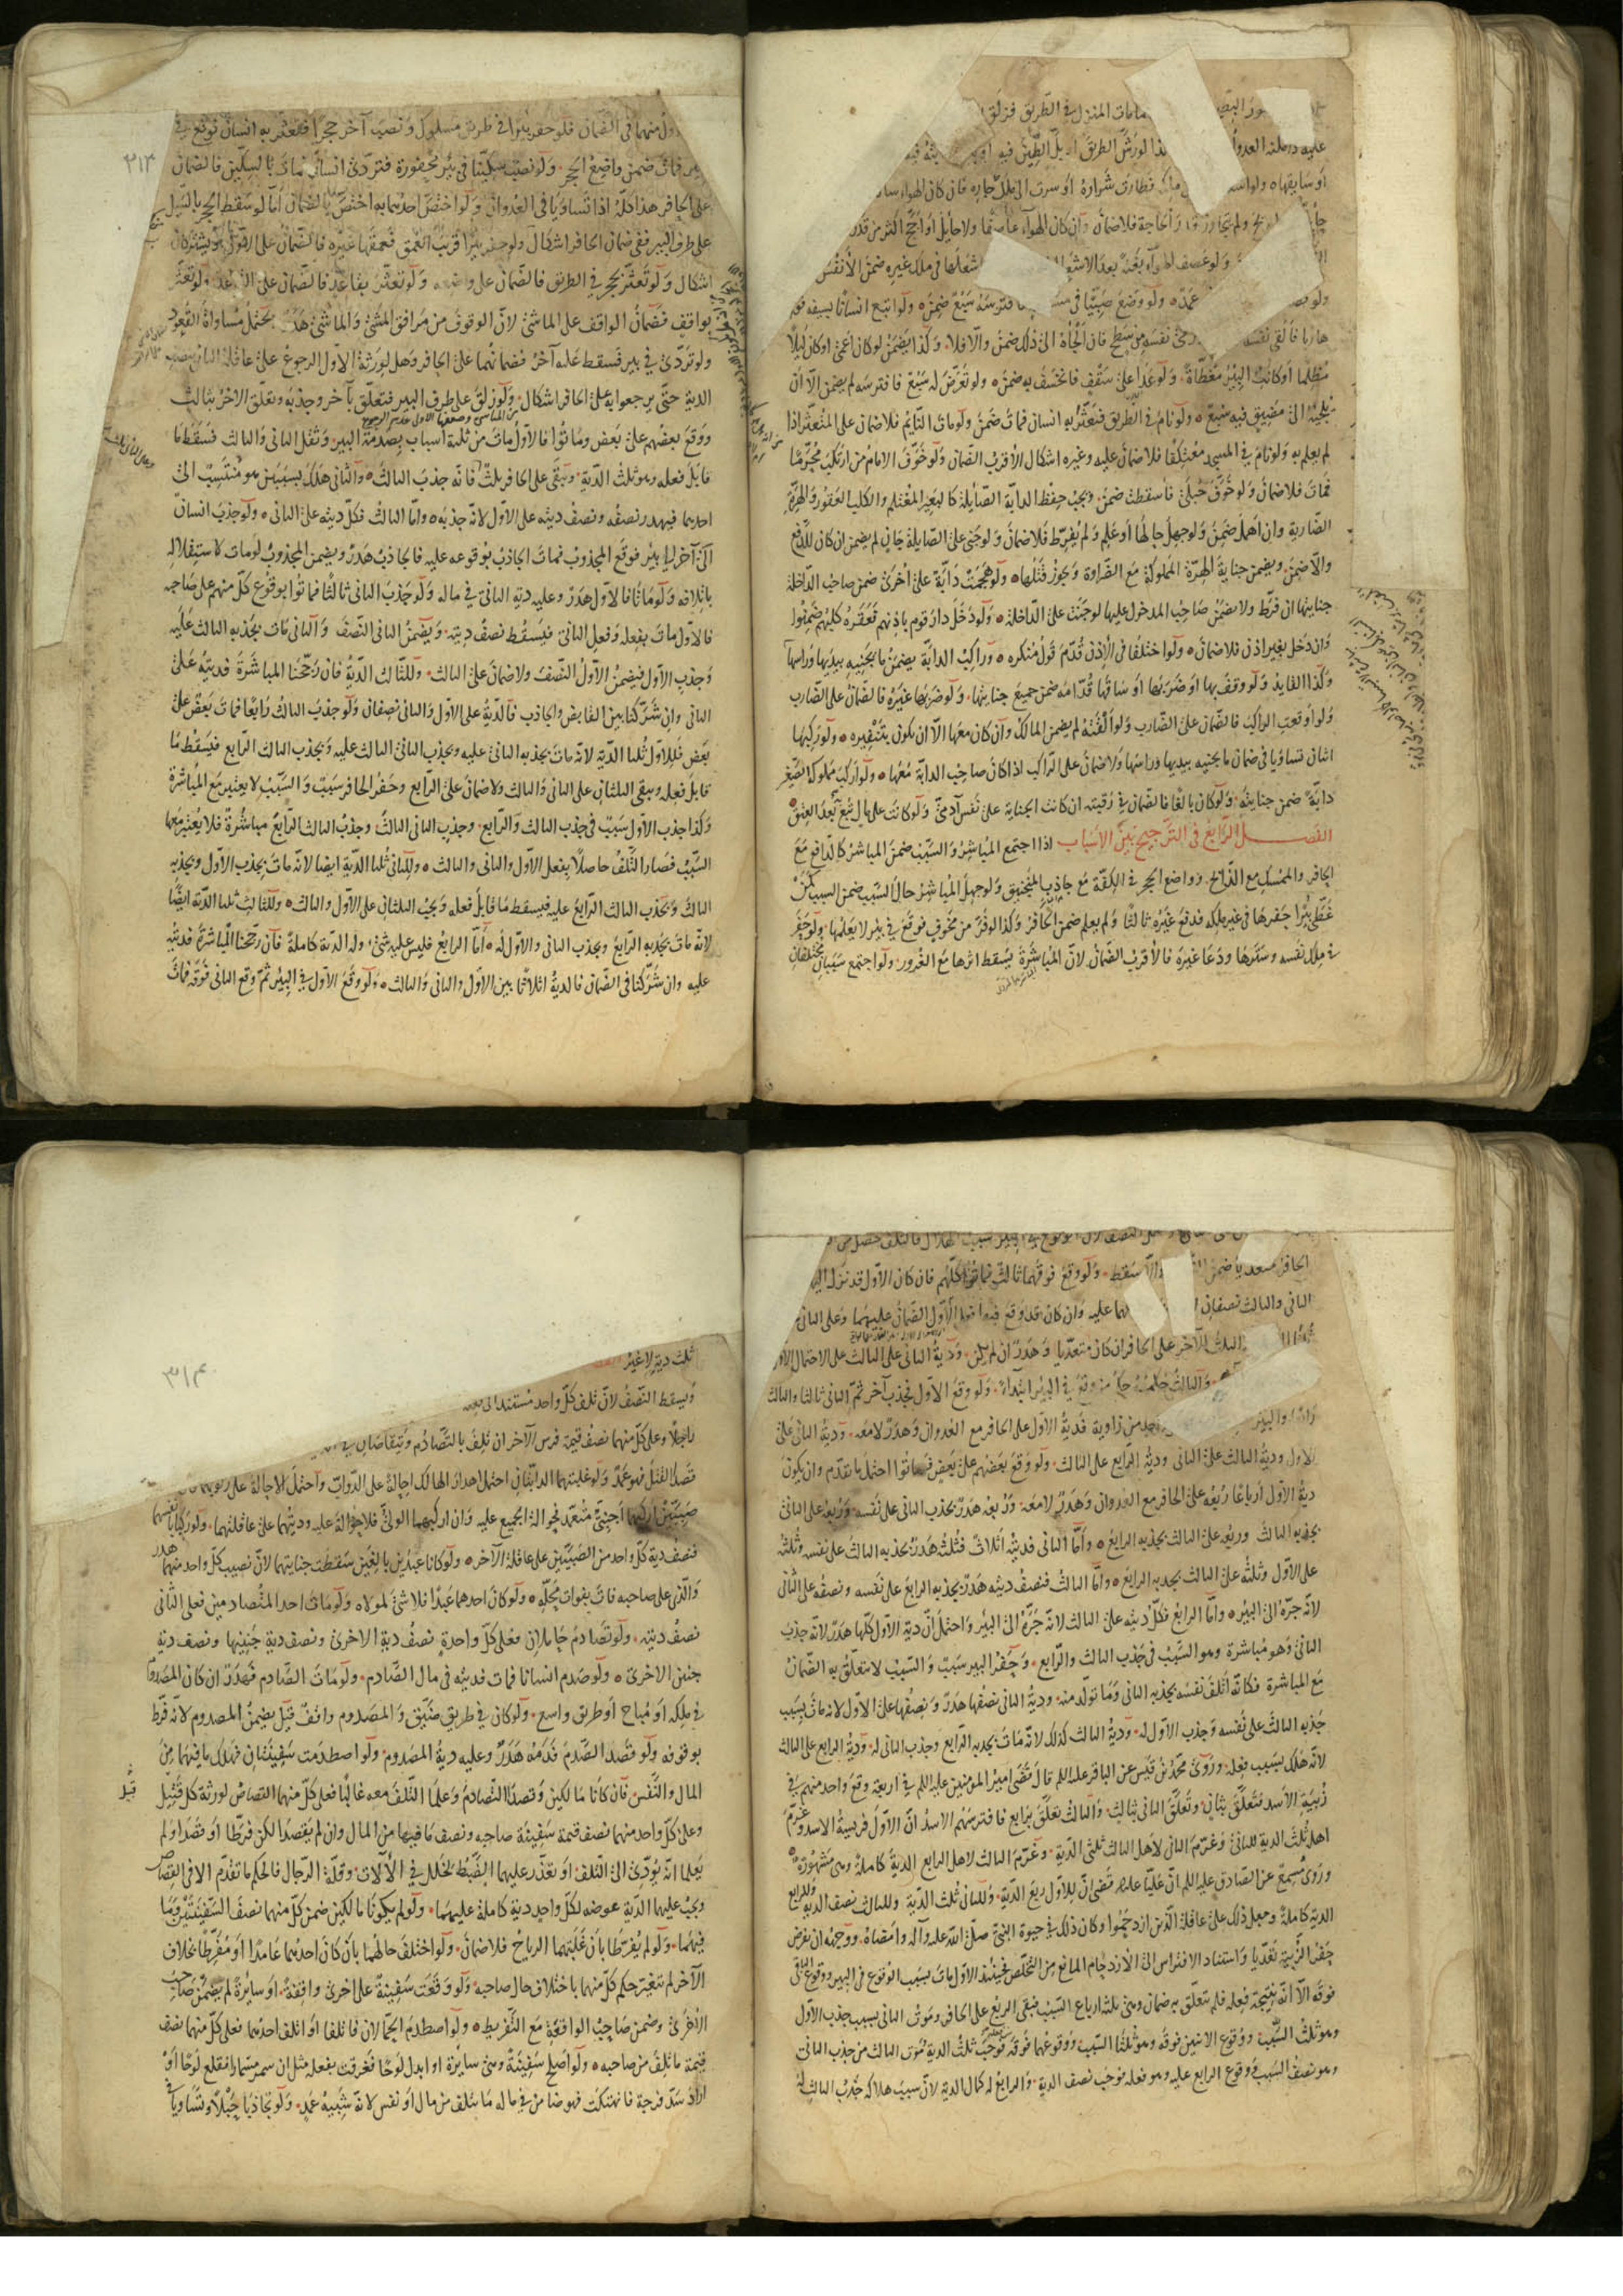 عليه درملنه العدوا لذا لورش الطريق او بل الطين فيه
او سابقها ولو فطارت شرارة او سرت الى ملك جاره فان كان الهواء ساكنا
ولم يتجاوز قدر الحاجة فلا ضمان وان كان الهواء عاصفا ولا حايل او اجج اكثر من قدر
ولو عصف الهواء بغتة بعد الاشعال اشعلها فى ملك غيره ضمن الانفس
عمده ولو وضع صبيا فى فافترسه سبع ضمن ولو اتبع انسانا بسيفه فولى
هاربا فالقى نفسه رمى نفسه من سطح فان الجاه الى ذلك ضمن والا فلا وكذا يضمن لو كان اعمى او كان ليلا
مظلما او كانت البير مغطاة ولو عدا على سقف فانخسف به ضمن ولو تعرض له سبع فافترسه لم يضمن الا ان
يلجئه الى مضيق فيه سبع ولو نام فى الطريق فتعثر به انسان فمات ضمن ولو مات النايم فلا ضمان على المتعثر اذا
لم يعلم به ولو نام فى المسجد معتكفا فلا ضمان عليه وغيره اشكال الاقرب الضمان ولو خوف الامام من ارتكب محرما
فمات فلا ضمان ولو خوف حبلى فاسقطت ضمن ويجب حفظ الدابة الصايلة كالبعير المغتلم والكلب العقور والهرة
الضارية وان اهمل ضمن ولو جهل حالها او علم ولم يفرط فلا ضمان ولو جنى على الصايلة جان لم يضمن ان كان للدفع
والا ضمن ويضمن جناية الهرة المملوكة مع الضراوة ويجوز قتلها ولو هجمت دابة على اخرى ضمن صاحب الداخلة
جنايتها ان فرط ولا يضمن صاحب المدخول عليها لو جنت على الداخلة ولو دخل دار قوم باذنهم فعقره كلبهم ضمنوا
وان دخل بغير اذن فلا ضمان ولو اختلفا فى الاذن قدم قول منكره وراكب الدابة يضمن ما يجنيه بيديها وراسها
وكذا القايد ولو وقف بها او ضربها او ساقها قدامه ضمن جميع جنايتها ولو ضربها غيره فالضمان على الضارب
ولو اوقعت الراكب فالضمان على الضارب ولو القته لم يضمن المالك وان كان معها الا ان يكون بتنفيره ولو ركبها
اثنان تساويا فى ضمان ما يجنيه بيديها وراسها ولا ضمان على الراكب اذا كان صاحب الدابة معها ولو اركب مملوكه الصغير
دابة ضمن جنايته ولو كان بالغا فالضمان فى رقبته ان كانت الجناية على نفس آدمى ولو كانت على مال تبع بعد العتق
الفصل الرابع فى الترجيح بين الاسباب اذا اجتمع المباشر والسبب ضمن المباشر كالدافع مع
الحافر والممسك مع الذابح وواضع الحجر فى الكفة مع جاذب المنجنيق ولو جهل المباشر حال السبب ضمن السبب كمن
غطى بئرا حفرها فى غير ملكه فدفع غيره ثالثا ولم يعلم ضمن الحافر وكذا لو فر من مخوف فوقع فى بئر لا يعلمها ولو حفر
فى ملك نفسه وسترها ودعا غيره فالاقرب الضمان لان المباشرة يسقط اثرها مع الغرور ولو اجتمع سببان مختلفان
٣١٣
منهما فى الضمان فلو حفر بئرا فى طريق مسلوك ونصب آخر حجرا فتعثر به انسان فوقع فى
البير فمات ضمن واضع الحجر ولو نصب سكينا فى بئر محفورة فتردى انسان فمات بالسكين فالضمان
على الحافر هذا كله اذا تساويا فى العدوان ولو اختص احدهما به اختص بالضمان اما لو سقط الحجر بالسيل
على طرف البير ففى ضمان الحافر اشكال ولو حفر بئرا قريب العمق فعمقها غيره فالضمان على الاول او يشتركان
اشكال ولو تعثر بحجر فى الطريق فالضمان على واضعه ولو تعثر بقاعد فالضمان على القاعد ولو تعثر
بواقف فضمان الواقف على الماشى لان الوقوف من مرافق المشى والماشى هدر يحتمل مساواة القعود
ولو تردى فى بير فسقط عليه آخر فضمانهما على الحافر وهل لورثة الاول الرجوع على عاقلة الثانى بنصف
الدية حتى يرجعوا به على الحافر اشكال ولو زلق على طرف البير فتعلق بآخر وجذبه وتعلق الاخر بثالث
ووقع بعضهم على بعض وماتوا فالاول مات من ثلثة اسباب بصدمة البير وثقل الثانى والثالث فسقط ما
قابل فعله وهو ثلث الدية ويبقى على الحافر ثلث فانه جذب الثالث والثانى هلك بسببين هو منتسب الى
احدهما فيهدر نصفه ونصف ديته على الاول لانه جذبه واما الثالث فكل ديته على الثانى ولو جذب انسان
الى آخر الى بير فوقع المجذوب فمات الجاذب بوقوعه عليه فالجاذب هدر ويضمن المجذوب لو مات لاستقلاله
باتلافه ولو ماتا فالاول هدر وعليه دية الثانى فى ماله ولو جذب الثانى ثالثا فماتوا بوقوع كل منهم على صاحبه
فالاول مات بفعله وفعل الثانى فيسقط نصف ديته ويضمن الثانى النصف والثانى مات بجذبه الثالث عليه
وجذب الاول فيضمن الاول النصف ولا ضمان على الثالث وللثالث الدية فان رجحنا المباشرة فديته على
الثانى وان شركنا بين القابض والجاذب فالدية على الاول والثانى نصفان ولو جذب الثالث رابعا فمات بعض على
بعض فللاول ثلثا الدية لانه مات بجذبه الثانى عليه وبجذب الثانى الثالث عليه وبجذب الثالث الرابع فيسقط ما
قابل فعله ويبقى الثلثان على الثانى والثالث ولا ضمان على الرابع وحفر الحافر سبب والسبب لا يعتبر مع المباشرة
وكذا جذب الاول سبب فى جذب الثالث والرابع وجذب الثانى الثالث وجذب الثالث الرابع مباشرة فلا يعتبر معها
السبب فصار التلف حاصلا بفعل الاول والثانى والثالث وللثانى ثلثا الدية ايضا لانه مات بجذب الاول وبجذبه
الثالث وبجذب الثالث الرابع عليه فيسقط ما قابل فعله ويجب الثلثان على الاول والثالث وللثالث ثلثا الدية ايضا
لانه مات بجذبه الرابع وبجذب الثانى والاول له اما الرابع فليس عليه شئ وله الدية كاملة فان رجحنا المباشرة فديته
عليه وان شركنا فى الضمان فالدية اثلاثا بين الاول والثانى والثالث ولو وقع الاول فى البير ثم وقع الثانى فوقه فمات
الحافر متعديا ضمن والا سقط ولو وقع فوقهما ثالث فماتوا كلهم فان كان الاول قد نزل اليها
الثانى والثالث نصفان عليه وان كان قد وقع الاول الضمان عليهما وعلى الثانى
الثلث الآخر على الحافر ان كان متعديا وهدر ان لم يكن ودية الثانى على الثالث على الاحتمال الاول
والثالث حكمه حكم من وقع فى البير ابتداء ولو وقع الاول فجذب آخر ثم الثانى ثالثا والثالث
رابعا والبير واحد من زاوية فدية الاول على الحافر مع العدوان وهدر لا معه ودية الثانى على
الاول ودية الثالث على الثانى ودية الرابع على الثالث ولو وقع بعضهم على بعض فماتوا احتمل ما تقدم وان يكون
دية الاول ارباعا ربعه على الحافر مع العدوان وهدر لا معه وربعه هدر بجذب الثانى على نفسه وربعه على الثانى
بجذبه الثالث وربعه على الثالث بجذبه الرابع واما الثانى فديته اثلاث فثلث هدر بجذبه الثالث على نفسه وثلثه
على الاول وثلثه على الثالث بجذبه الرابع واما الثالث فنصف ديته هدر بجذبه الرابع على نفسه ونصفه على الثانى
لانه جره الى البير واما الرابع فكل ديته على الثالث لانه جره الى البير واحتمل ان دية الاول كلها هدر لانه جذب
الثانى وهو مباشرة وهو السبب فى جذب الثالث والرابع وحفر البير سبب والسبب لا يتعلق به الضمان
مع المباشرة فكانه اتلف نفسه بجذبه الثانى وما تولد منه ودية الثانى نصفها هدر ونصفها على الاول لانه مات بسبب
جذبه الثالث على نفسه وجذب الاول له ودية الثالث كذلك لانه مات بجذبه الرابع وجذب الثانى له ودية الرابع على الثالث
لانه هلك بسبب فعله وروى محمد بن قيس عن الباقر عليه السلم قال قضى امير المومنين عليه السلم فى اربعة وقع واحد منهم فى
زبية الاسد فتعلق بثان وتعلق الثانى بثالث والثالث تعلق برابع فافترسهم الاسد ان الاول فريسة الاسد وغرم
اهله ثلث الدية للثانى وغرم الثانى لاهل الثالث ثلثى الدية وغرم الثالث لاهل الرابع الدية كاملة وهى مشهورة
وروى مسمع عن الصادق عليه السلم ان عليا عليه السلم قضى ان للاول ربع الدية وللثانى ثلث الدية وللثالث نصف الدية وللرابع
الدية كاملة وجعل ذلك على عاقلة الذين ازدحموا وكان ذلك فى حيوة النبى صلى الله عليه وآله وامضاه ووجهه ان يفرض
حفر الزبية تعديا واستناد الافتراس الى الازدحام المانع من التخلص فحينئذ الاول مات بسبب الوقوع فى البير ووقوع الباقى
فوقه الا انه نتيجة فعله فلم يتعلق به ضمان وهى ثلثة ارباع السبب فبقى الربع على الحافر وموت الثانى بسبب جذب الاول
وهو ثلث السبب ووقوع الاثنين فوقه وهو ثلثا السبب ووقوعهما فوقه فوجب ثلث الدية وموت الثالث من جذب الثانى
وهو نصف السبب ووقوع الرابع عليه وهو فعله فوجب نصف الدية والرابع له كمال الدية لان سبب هلاكه جذب الثالث له
٣١٤
ثلث دية لا غير
ويسقط النصف لان تلف كل واحد مستند الى
راجلا وعلى كل منهما نصف قيمة فرس الآخر ان تلف بالتصادم ويتقاصان فى
قصدا القتل فهو عمد ولو غلبتهما الدابتان احتمل اهدار الهالك احالة على الدواب واحتمل الاحالة على ركوبهما
صبيين اركبهما اجنبى متعد فحوالة الجميع عليه وان اركبهما الولى فلا حوالة عليه وديتهما على عاقلتهما ولو ركبا بانفسهما
فنصف دية كل واحد من الصبيين على عاقلة الآخر ولو كانا عبدين بالغين سقطت جنايتهما لان نصيب كل واحد منهما هدر
والذى على صاحبه فات بفوات محله ولو كان احدهما عبدا فلا شئ لمولاه ولو مات احد المتصادمين فعلى الثانى
نصف ديته ولو تصادم حاملان فعلى كل واحدة نصف دية الاخرى ونصف دية جنينها ونصف دية
جنين الاخرى ولو صدم انسانا فمات فديته فى مال الصادم ولو مات الصادم فهدر ان كان المصدوم
فى ملكه او مباح او طريق واسع ولو كان فى طريق ضيق والمصدوم واقف قيل يضمن المصدوم لانه فرط
بوقوفه ولو قصد الصدم فدمه هدر وعليه دية المصدوم ولو اصطدمت سفينتان فهلك ما فيهما من
المال والنفس فان كانا مالكين وقصدا التصادم وعلما التلف معه غالبا فعلى كل منهما القصاص لورثة كل قتيل
وعلى كل واحد منهما نصف قيمة سفينة صاحبه ونصف ما فيها من المال وان لم يقصدا لكن فرطا او قصدا ولم
يعلما انه يؤدى الى التلف او تعذر عليهما الضبط لخلل فى الآلات وقلة الرجال فالحكم ما تقدم الا فى القصاص
ويجب عليهما الدية عوضه لكل واحد دية كاملة عليهما ولو لم يكونا مالكين ضمن كل منهما نصف السفينتين وما
فيهما ولو لم يفرطا بان غلبتهما الرياح فلا ضمان ولو اختلف حالهما بان كان احدهما عامدا او مفرطا بخلاف
الآخر لم يتغير حكم كل منهما باختلاف حال صاحبه ولو وقعت سفينة على اخرى واقفة او سائرة لم يضمن صاحب
الاخرى وضمن صاحب الواقعة مع التفريط ولو اصطدم الحمالان فاتلفا او اتلف احدهما فعلى كل منهما نصف
قيمة ما تلف من صاحبه ولو اصلح سفينة وهى سائرة او ابدل لوحا فغرقت بفعله مثل ان سمر مسمارا فقلع لوحا او
اراد سد فرجة فانهتكت فهو ضامن فى ماله ما يتلف من مال او نفس لانه شبيه عمد ولو تجاذبا حبلا وتساويا